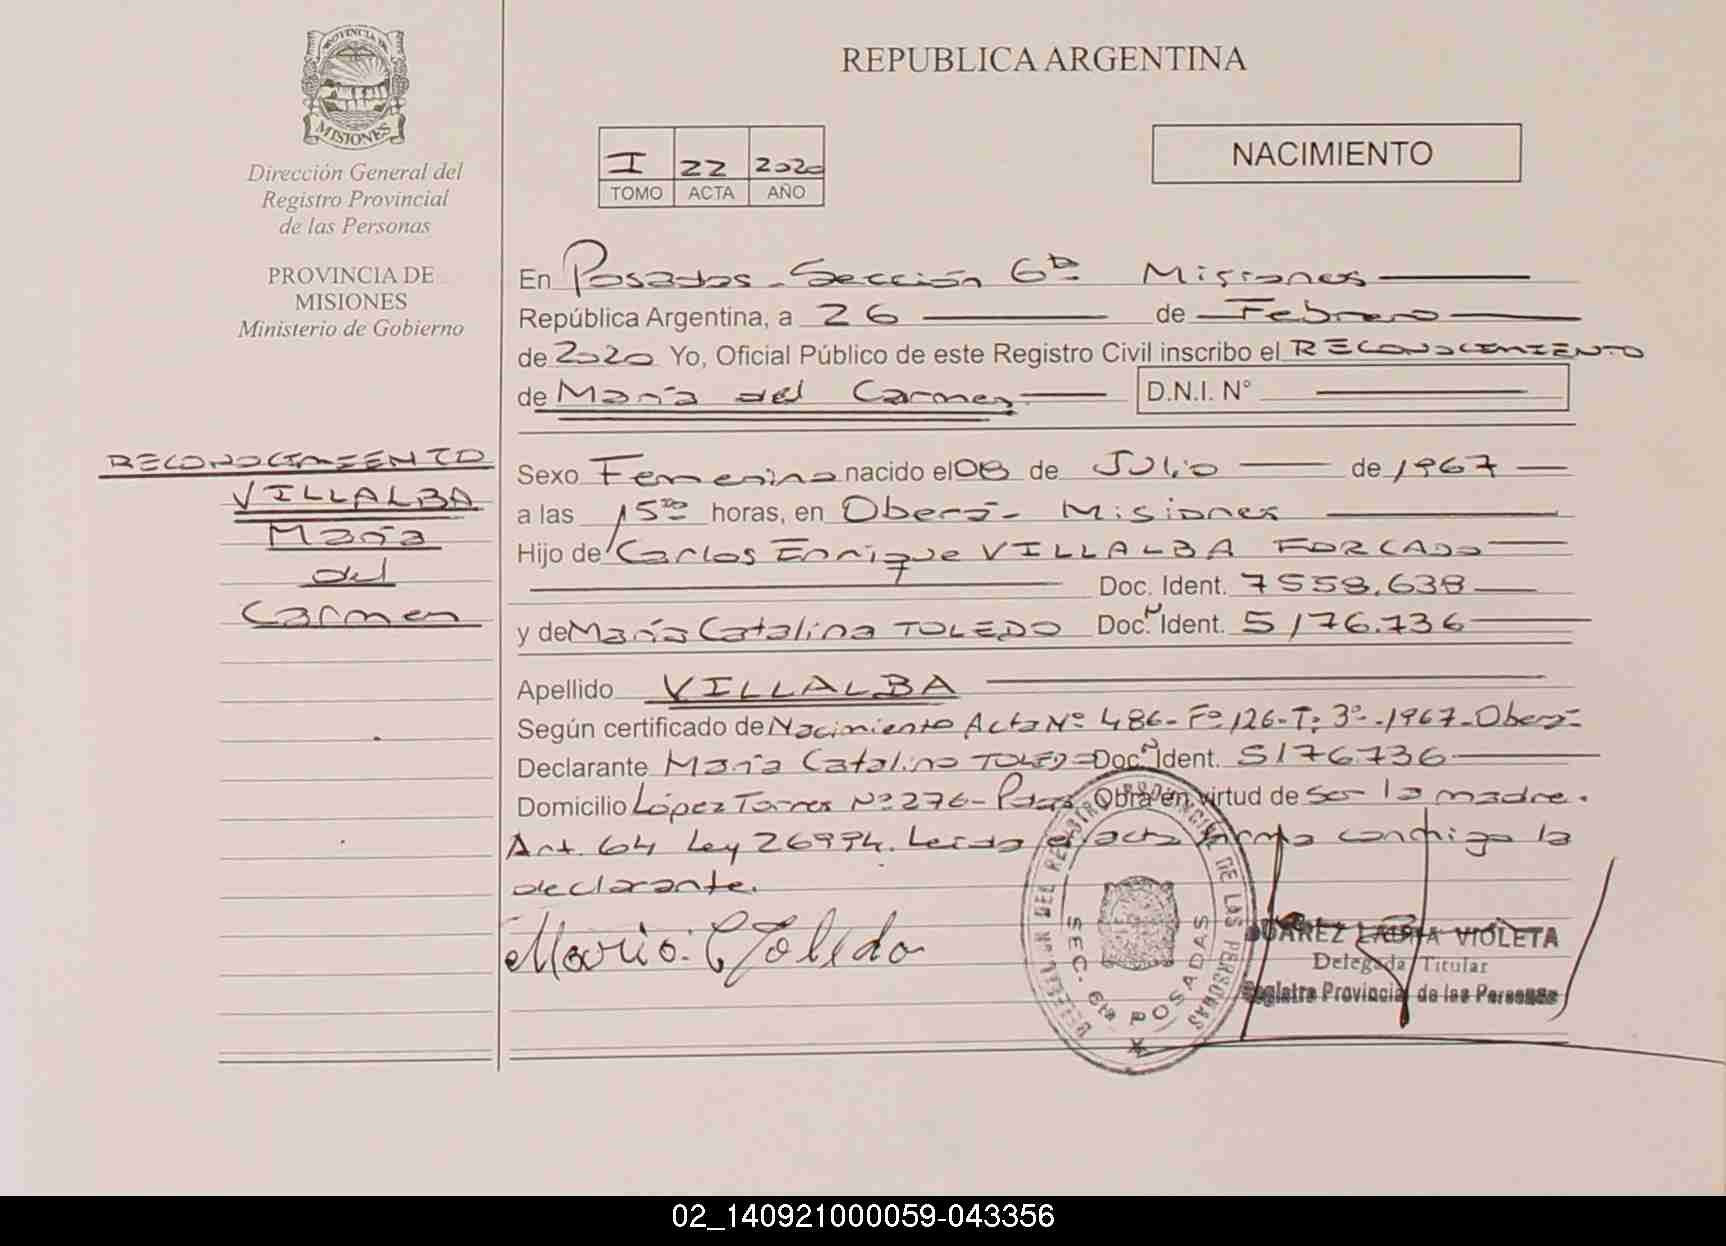 PROVINCIA DE
MISIONES
Dirección General del
Registro Provincial
de las Personas
PROVINCIA DE
MISIONES
Ministerio de Gobierno
RECONOCIMIENTO
VILLALBA
María
del
Carmen
REPUBLICA ARGENTINA
I 22 2020
TOMO ACTA AÑO
NACIMIENTO
En Posadas - Sección 6ta Misiones
República Argentina, a 26 de Febrero
de 2020 Yo, Oficial Público de este Registro Civil inscribo el RECONOCIMIENTO
de María del Carmen D.N.I. N°
Sexo Femenino nacido el 08 de Julio de 1967
a las 15:00 horas, en Oberá - Misiones
Hijo de Carlos Enrique VILLALBA FORCADO
Doc. Ident. 7558.638
y de María Catalina TOLEDO Doc. Ident. 5176.736
Apellido VILLALBA
Según certificado de Nacimiento Acta Nº 486 - Fº 126 - T: 3º - 1967 - Oberá -
Declarante María Catalina TOLEDO Doc. Ident. 5176736
Domicilio López Torres Nº 276 - Pdas Obra en virtud de ser la madre.
Art. 64 Ley 26994. Leída el acta firma conmigo la
declarante.
Maria C Toledo
DEL REGISTRO PROVINCIAL DE LAS PERSONAS
SEC. 6ta POSADAS
SUAREZ LAURA VIOLETA
Delegada Titular
Registro Provincial de las Personas
02_140921000059-043356